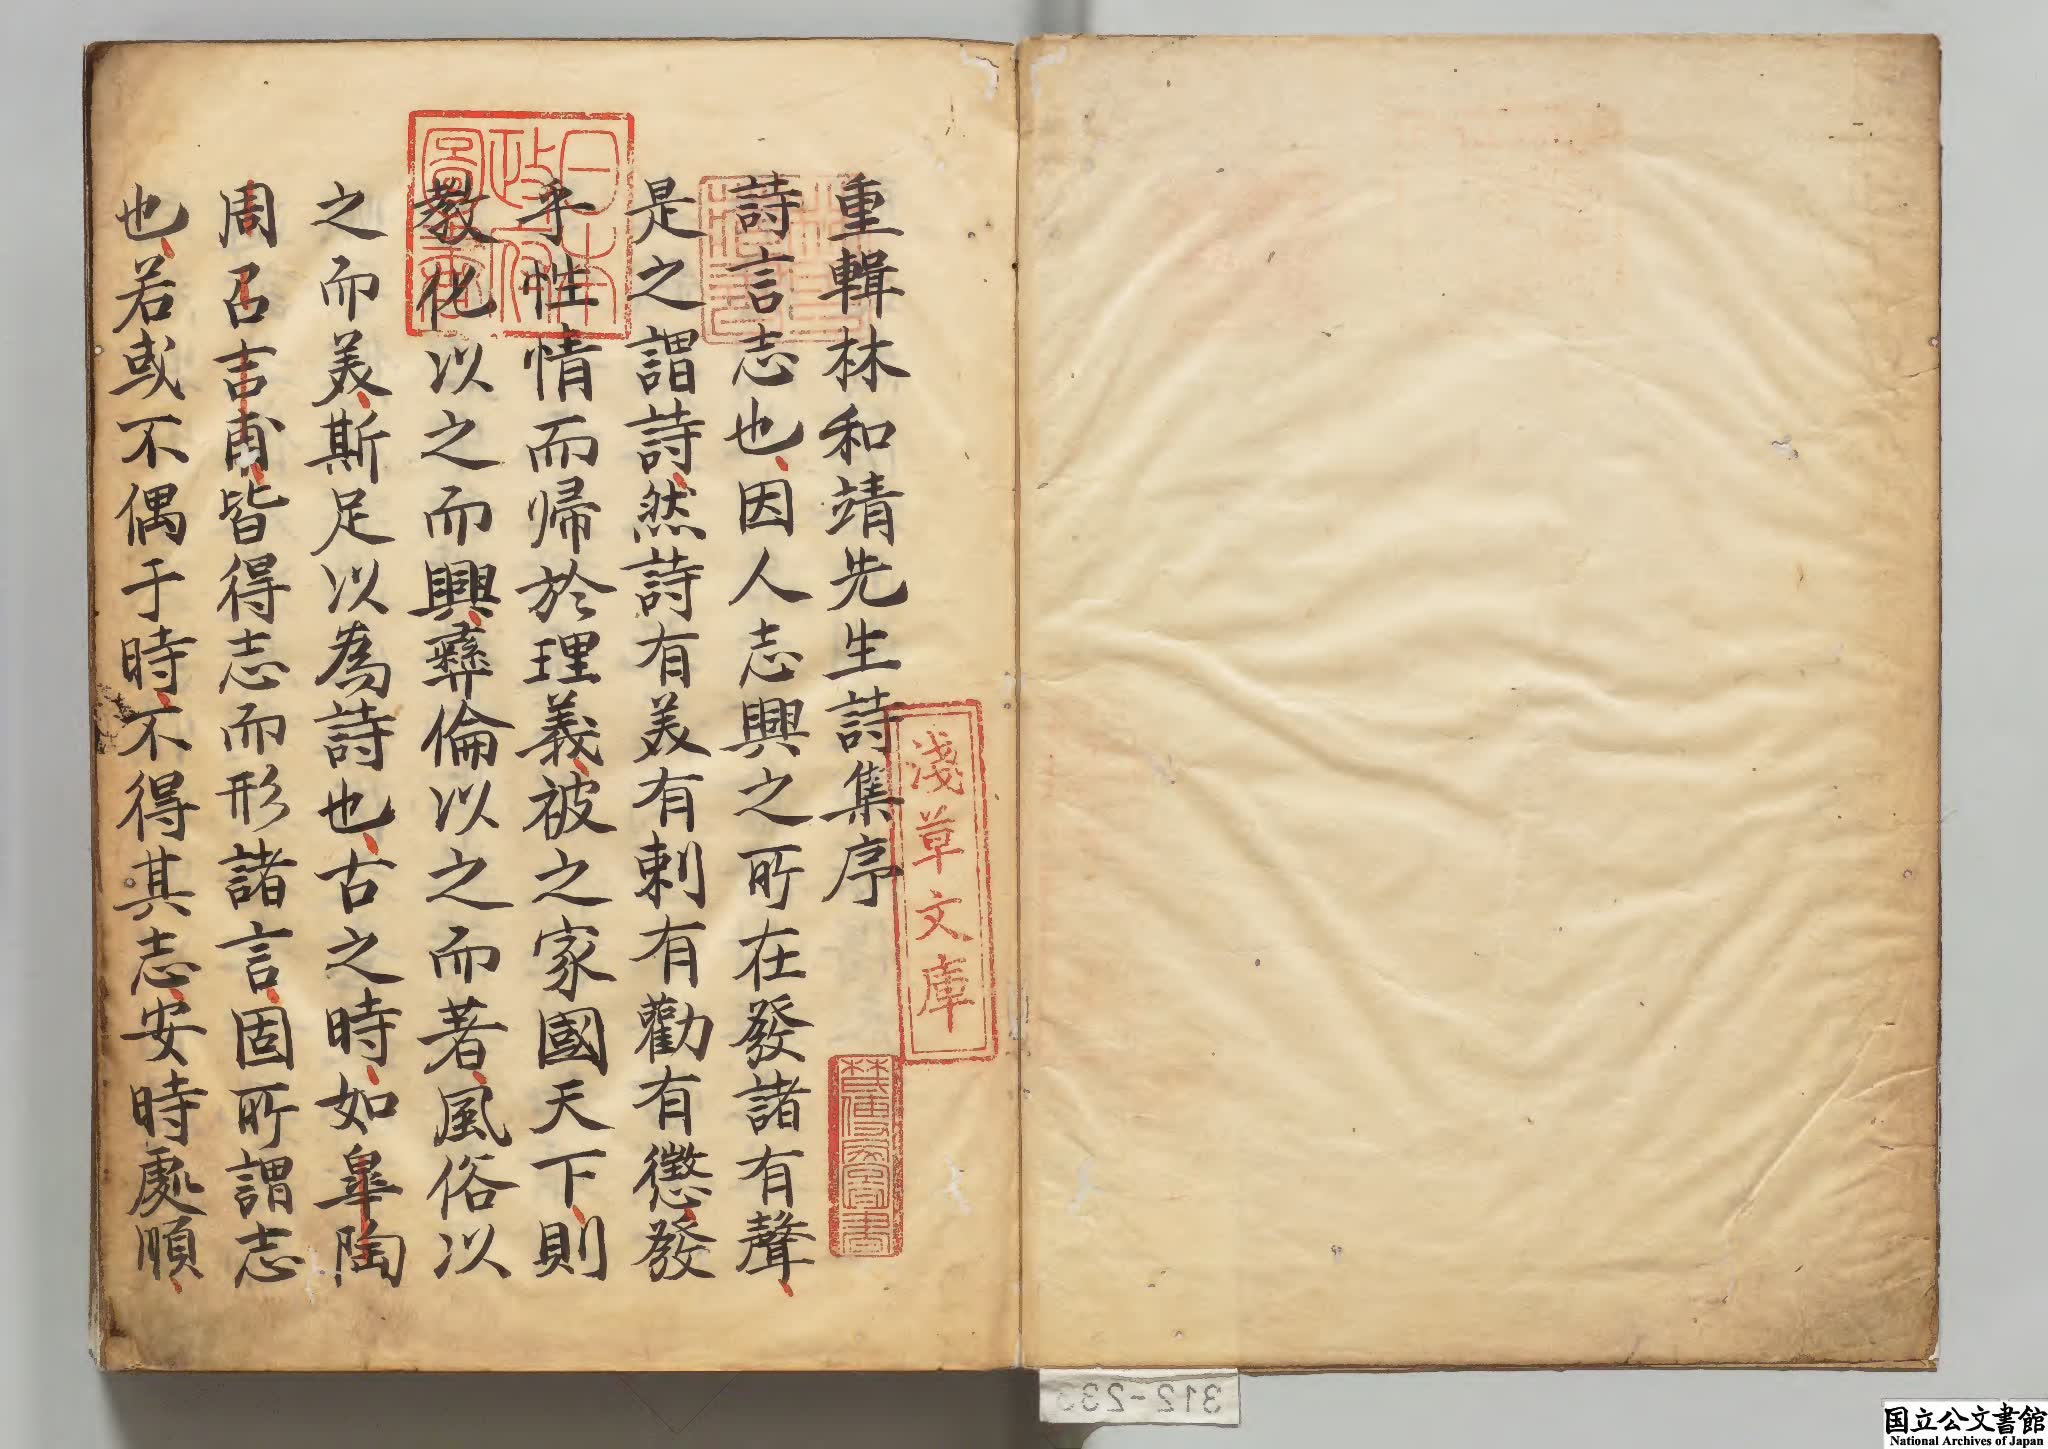 重輯林和靖先生詩集序
詩言志也因人志興之所在發諸有聲
是之謂詩然詩有美有刺有勸有懲發
乎性情而帰於理義被之家國天下則
教化以之而興彛倫以之而著風俗以
之而美斯足以為詩也古之時如皐陶
周召吉甫皆得志而形諸言固所謂志
也若或不偶于時不得其志安時處順
日本
政府
圖書
林氏
藏書
淺草文庫
312-233
国立公文書館
National Archives of Japan